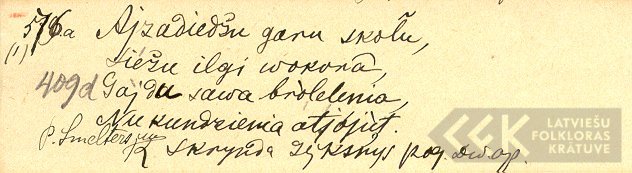 576a Ajzadiedžu garu skołu,
(1) Siêžu ilgi wokorâ,
409d Gajdu sawa bròlelenia,
Nu kundzienia atjôjut.
P. Smelters
Skrynda
pog.
LATVIEŠU
FOLKLORAS
KRĀTUVE